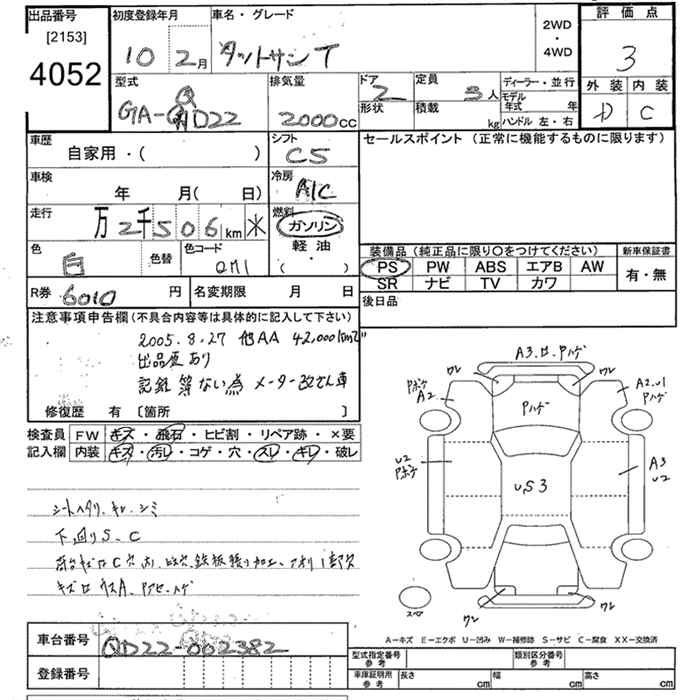 出品番号
[2153]
4052
初度登録年月
10 2月
車名・グレード
ダットサンT
2WD
・
4WD
評価点
3
外装 内装
D C
型式
GA-QD22
排気量
2000cc
ドア
2
形状
定員
3人
積載
kg
ディーラー・並行
モデル
年式 年
ハンドル 左・右
車歴
自家用・( )
シフト
C5
セールスポイント (正常に機能するものに限ります)
車検
年 月( 日)
冷房
A/C
走行
万2千506km
燃料
ガソリン
軽油
( )
色
白
色替
色コード
装備品(純正品に限り○をつけてください)
PS PW ABS エアB AW
SR ナビ TV カワ
新車保証書
有・無
R券
6010円
名変期限 月 日
後日品
注意事項申告欄(不具合内容等は具体的に記入して下さい)
2005.8.27 他AA 42,000km
出品歴あり
記録簿ない為 メーター改ざん車
修復歴 有 [箇所 ]
検査員
記入欄
FW キズ・飛石・ヒビ割・リペア跡・×要
内装 キズ・汚レ・コゲ・穴・スレ・キレ・破レ
シートヘタリ、キレ、シミ
下回りS、C
A3
ワレ ワレ
A2
A2
U1
U2
A3
U2
U,S3
ワレ ワレ
A-キズ E-エクボ U-凹み W-補修跡 S-サビ C-腐食 XX-交換済
車台番号
QD22-002382
登録番号
型式指定番号
参考
類別区分番号
参考
車庫証明用
参考
長さ cm 幅 cm 高さ cm